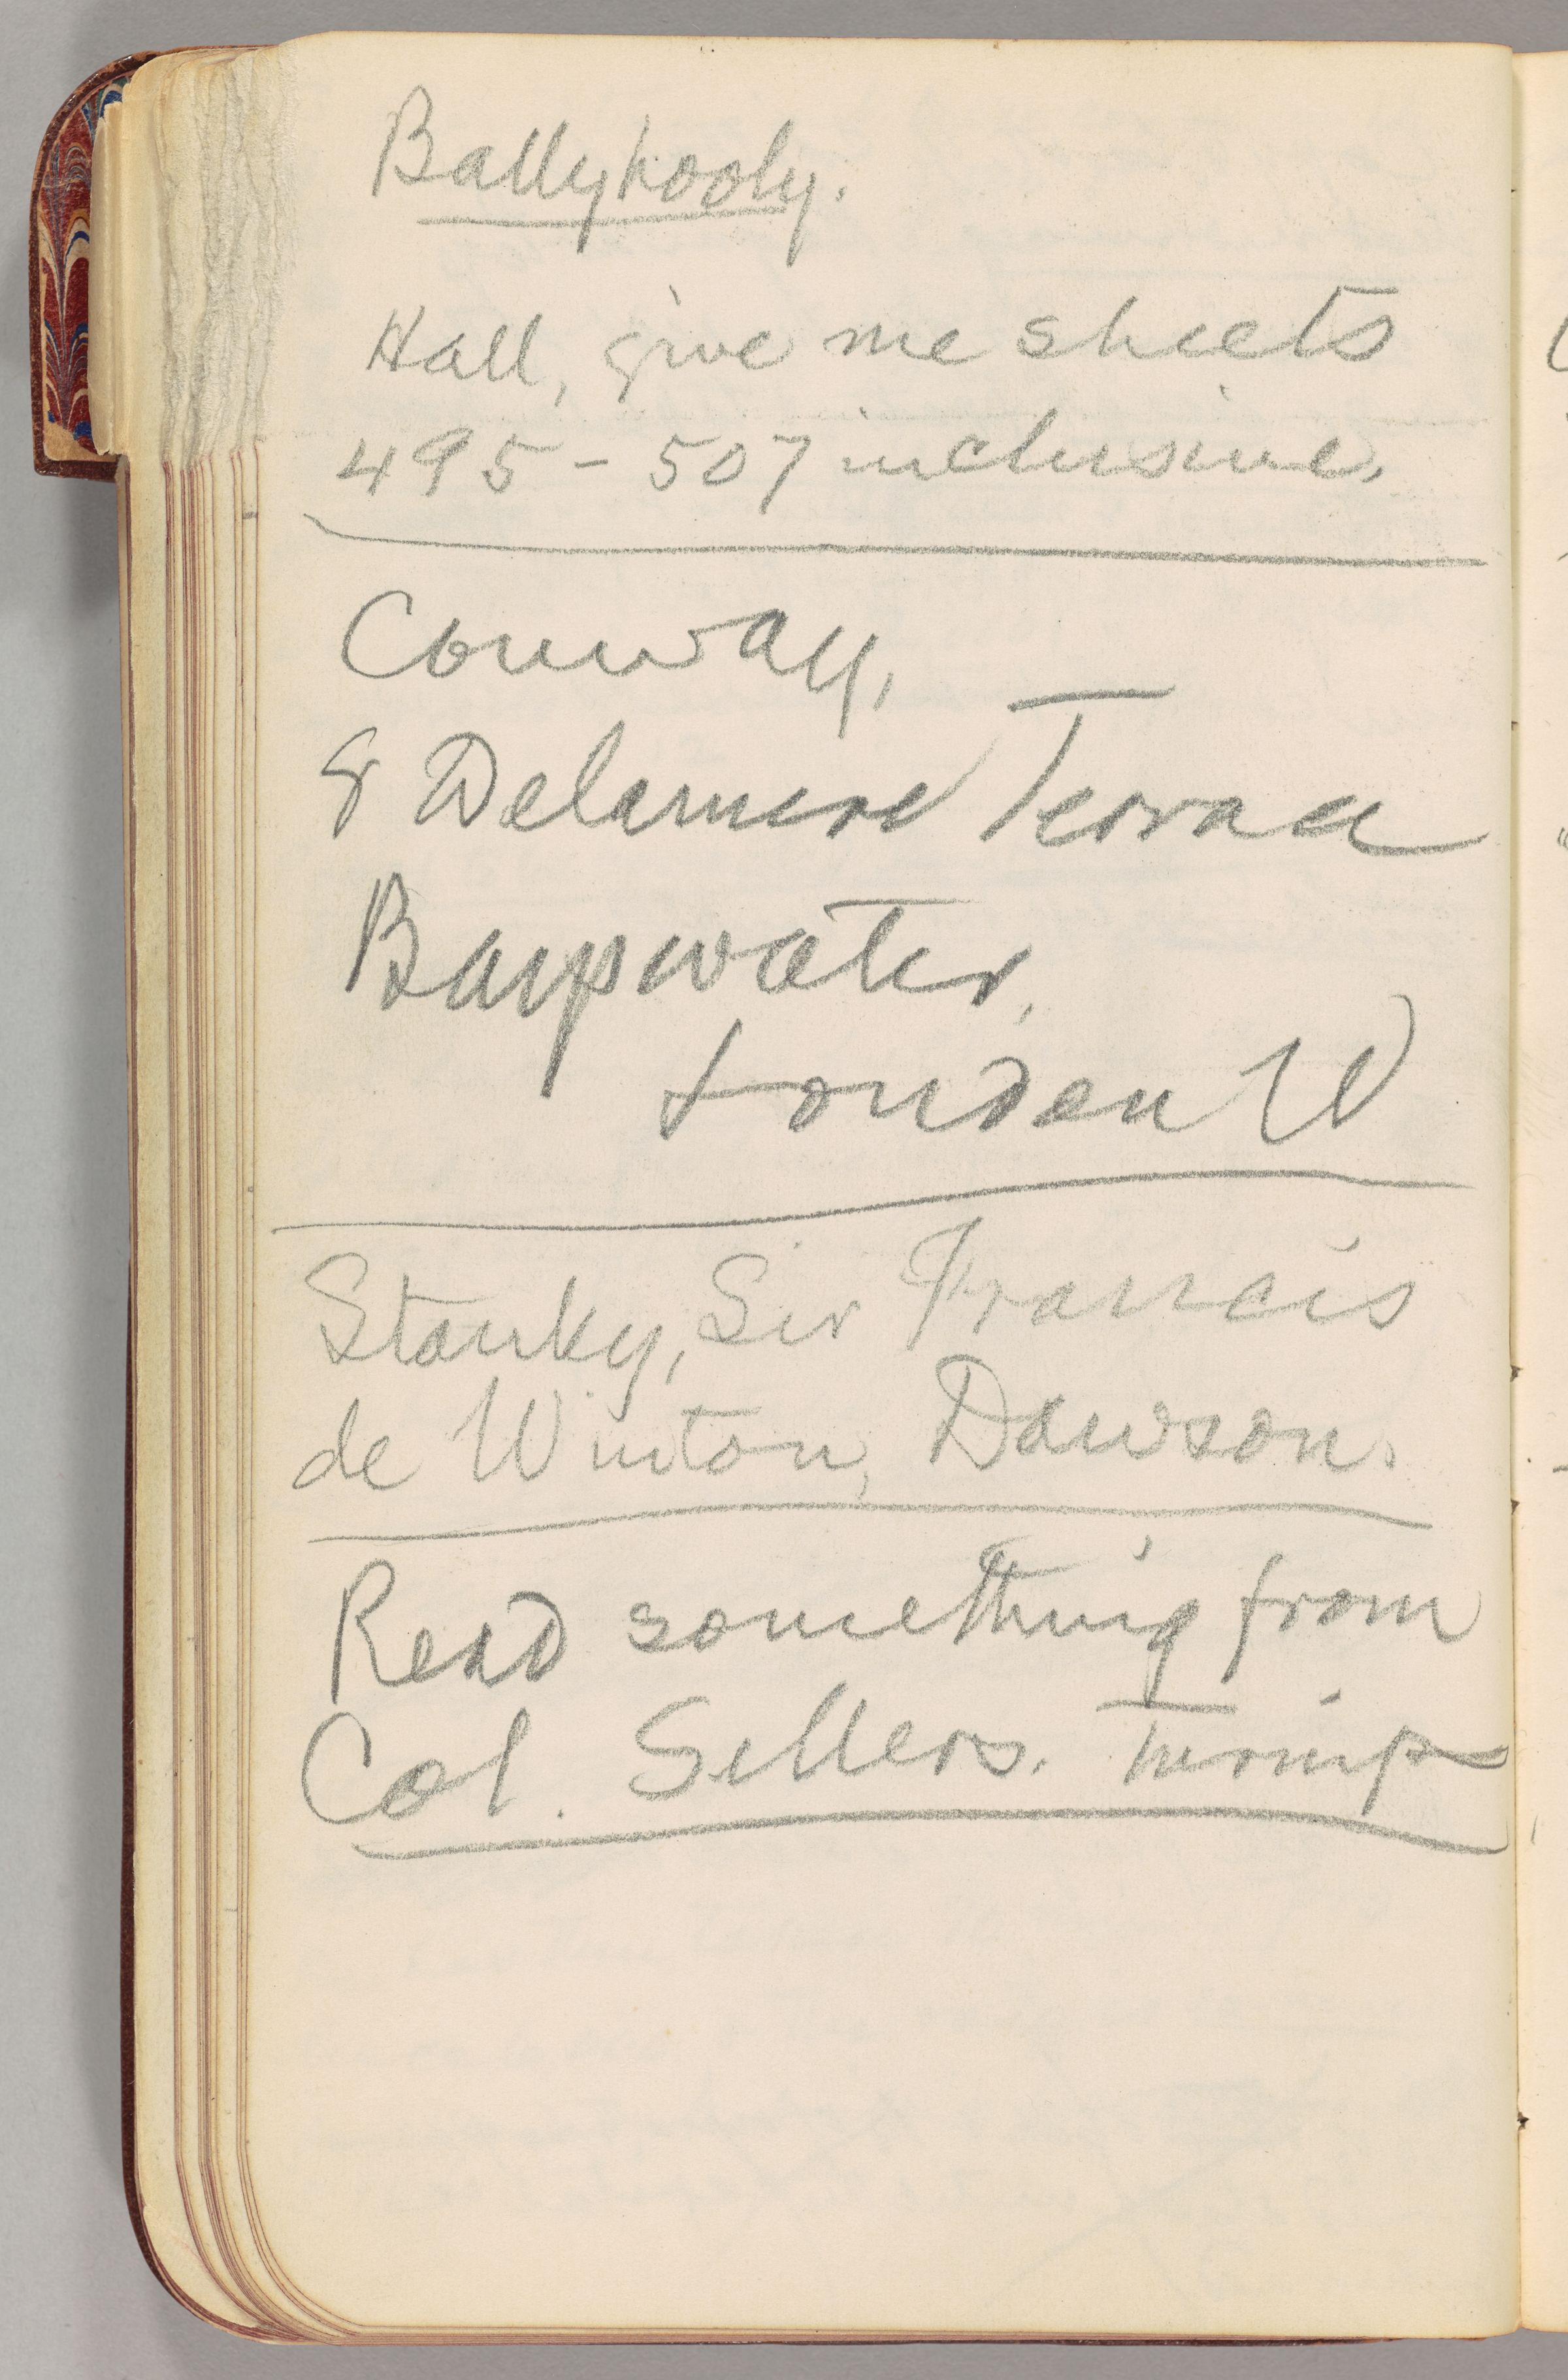 Ballyhooly.
Hall, give me sheets
495 – 507 inclusive.
Conway,
8 Delamere Terrace
Bayswater,
London W
Stanley, Sir Francis
de Winton, Dawson.
Read something from
Col. Sellers.